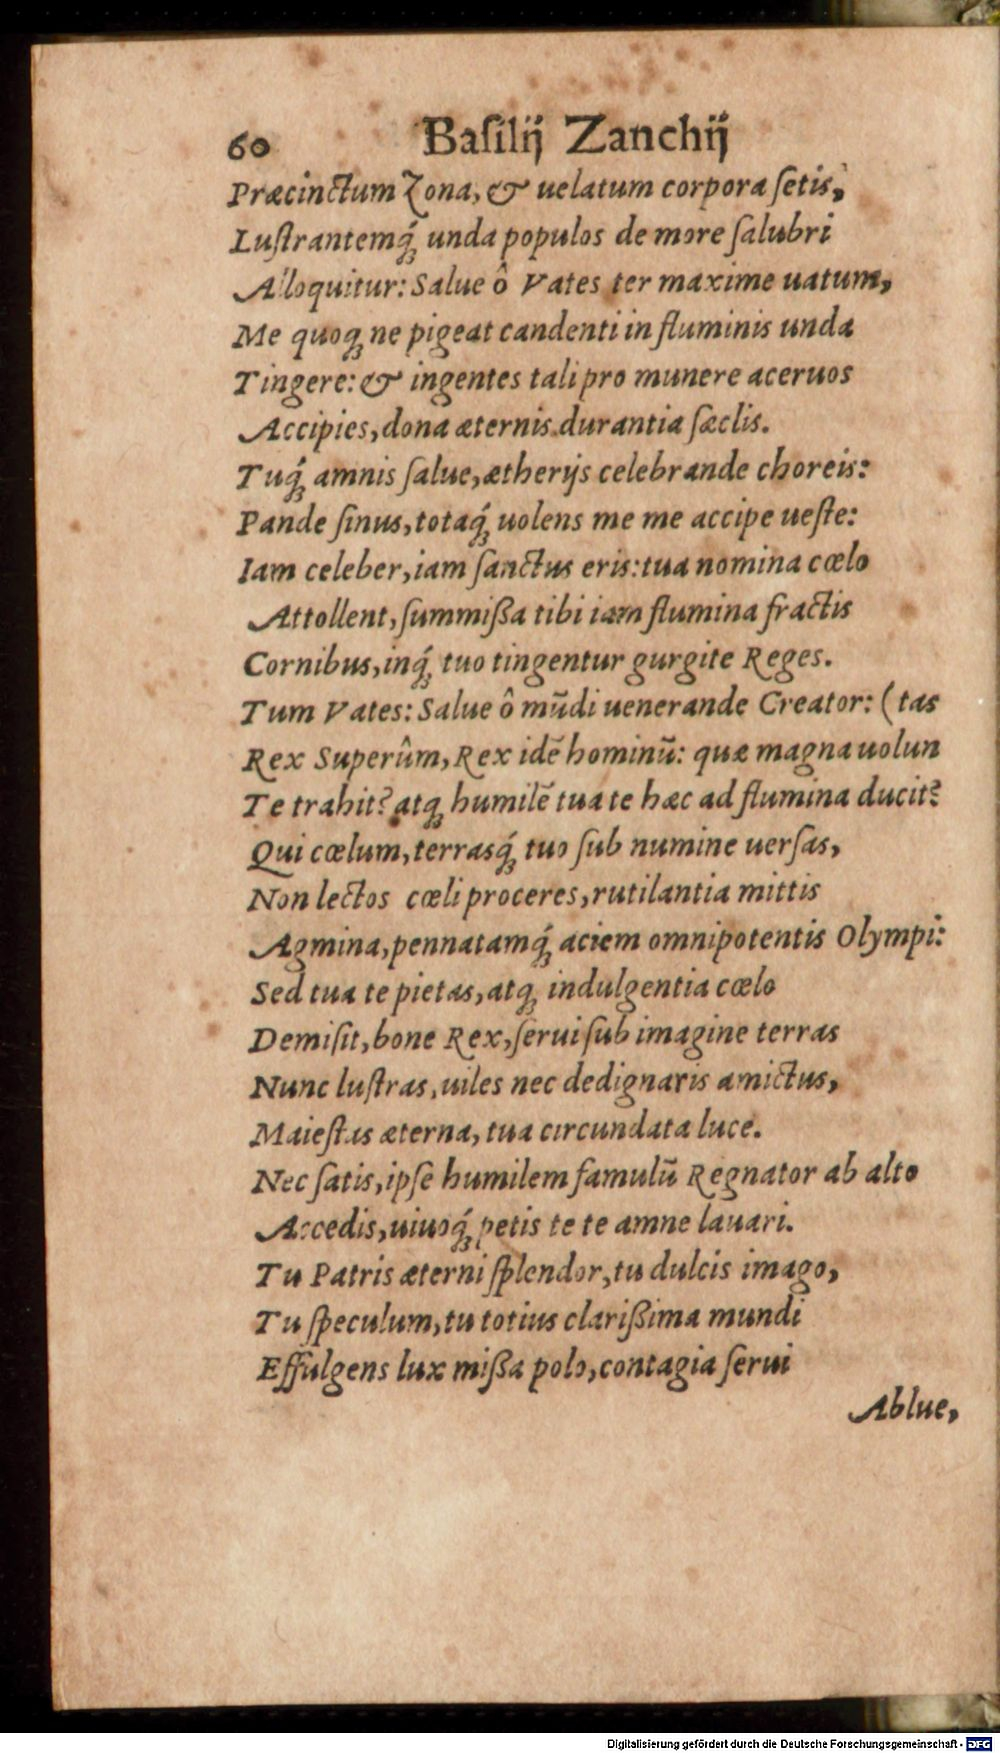 60 Baſilij Zanchij
Præcinctum Zona, & uelatum corpora ſetis,
Luſtrantemq́; unda populos de more ſalubri
Alloquitur: Salue ô Vates ter maxime uatum,
Me quoq; ne pigeat candenti in fluminis unda
Tingere: & ingentes tali pro munere aceruos
Accipies, dona æternis durantia ſæclis.
Tuq́; amnis ſalue, ætherijs celebrande choreis:
Pande ſinus, totaq́; uolens me me accipe ueſte:
Iam celeber, iam ſanctus eris: tua nomina cœlo
Attollent, ſummißa tibi iam flumina fractis
Cornibus, inq́; tuo tingentur gurgite Reges.
Tum Vates: Salue ô mūdi uenerande Creator: (tas
Rex Superûm, Rex idē hominū: quæ magna uolun
Te trahit? atq; humilē tua te hæc ad flumina ducit?
Qui cœlum, terrasq́; tuo ſub numine uerſas,
Non lectos cœli proceres, rutilantia mittis
Agmina, pennatamq́; aciem omnipotentis Olympi:
Sed tua te pietas, atq; indulgentia cœlo
Demiſit, bone Rex, ſerui ſub imagine terras
Nunc luſtras, uiles nec dedignaris amictus,
Maieſtas æterna, tua circundata luce.
Nec ſatis, ipſe humilem famulū Regnator ab alto
Accedis, uiuoq́; petis te te amne lauari.
Tu Patris æterni ſplendor, tu dulcis imago,
Tu ſpeculum, tu totius clarißima mundi
Effulgens lux mißa polo, contagia ſerui
Ablue,
Digitalisierung gefördert durch die Deutsche Forschungsgemeinschaft - DFG